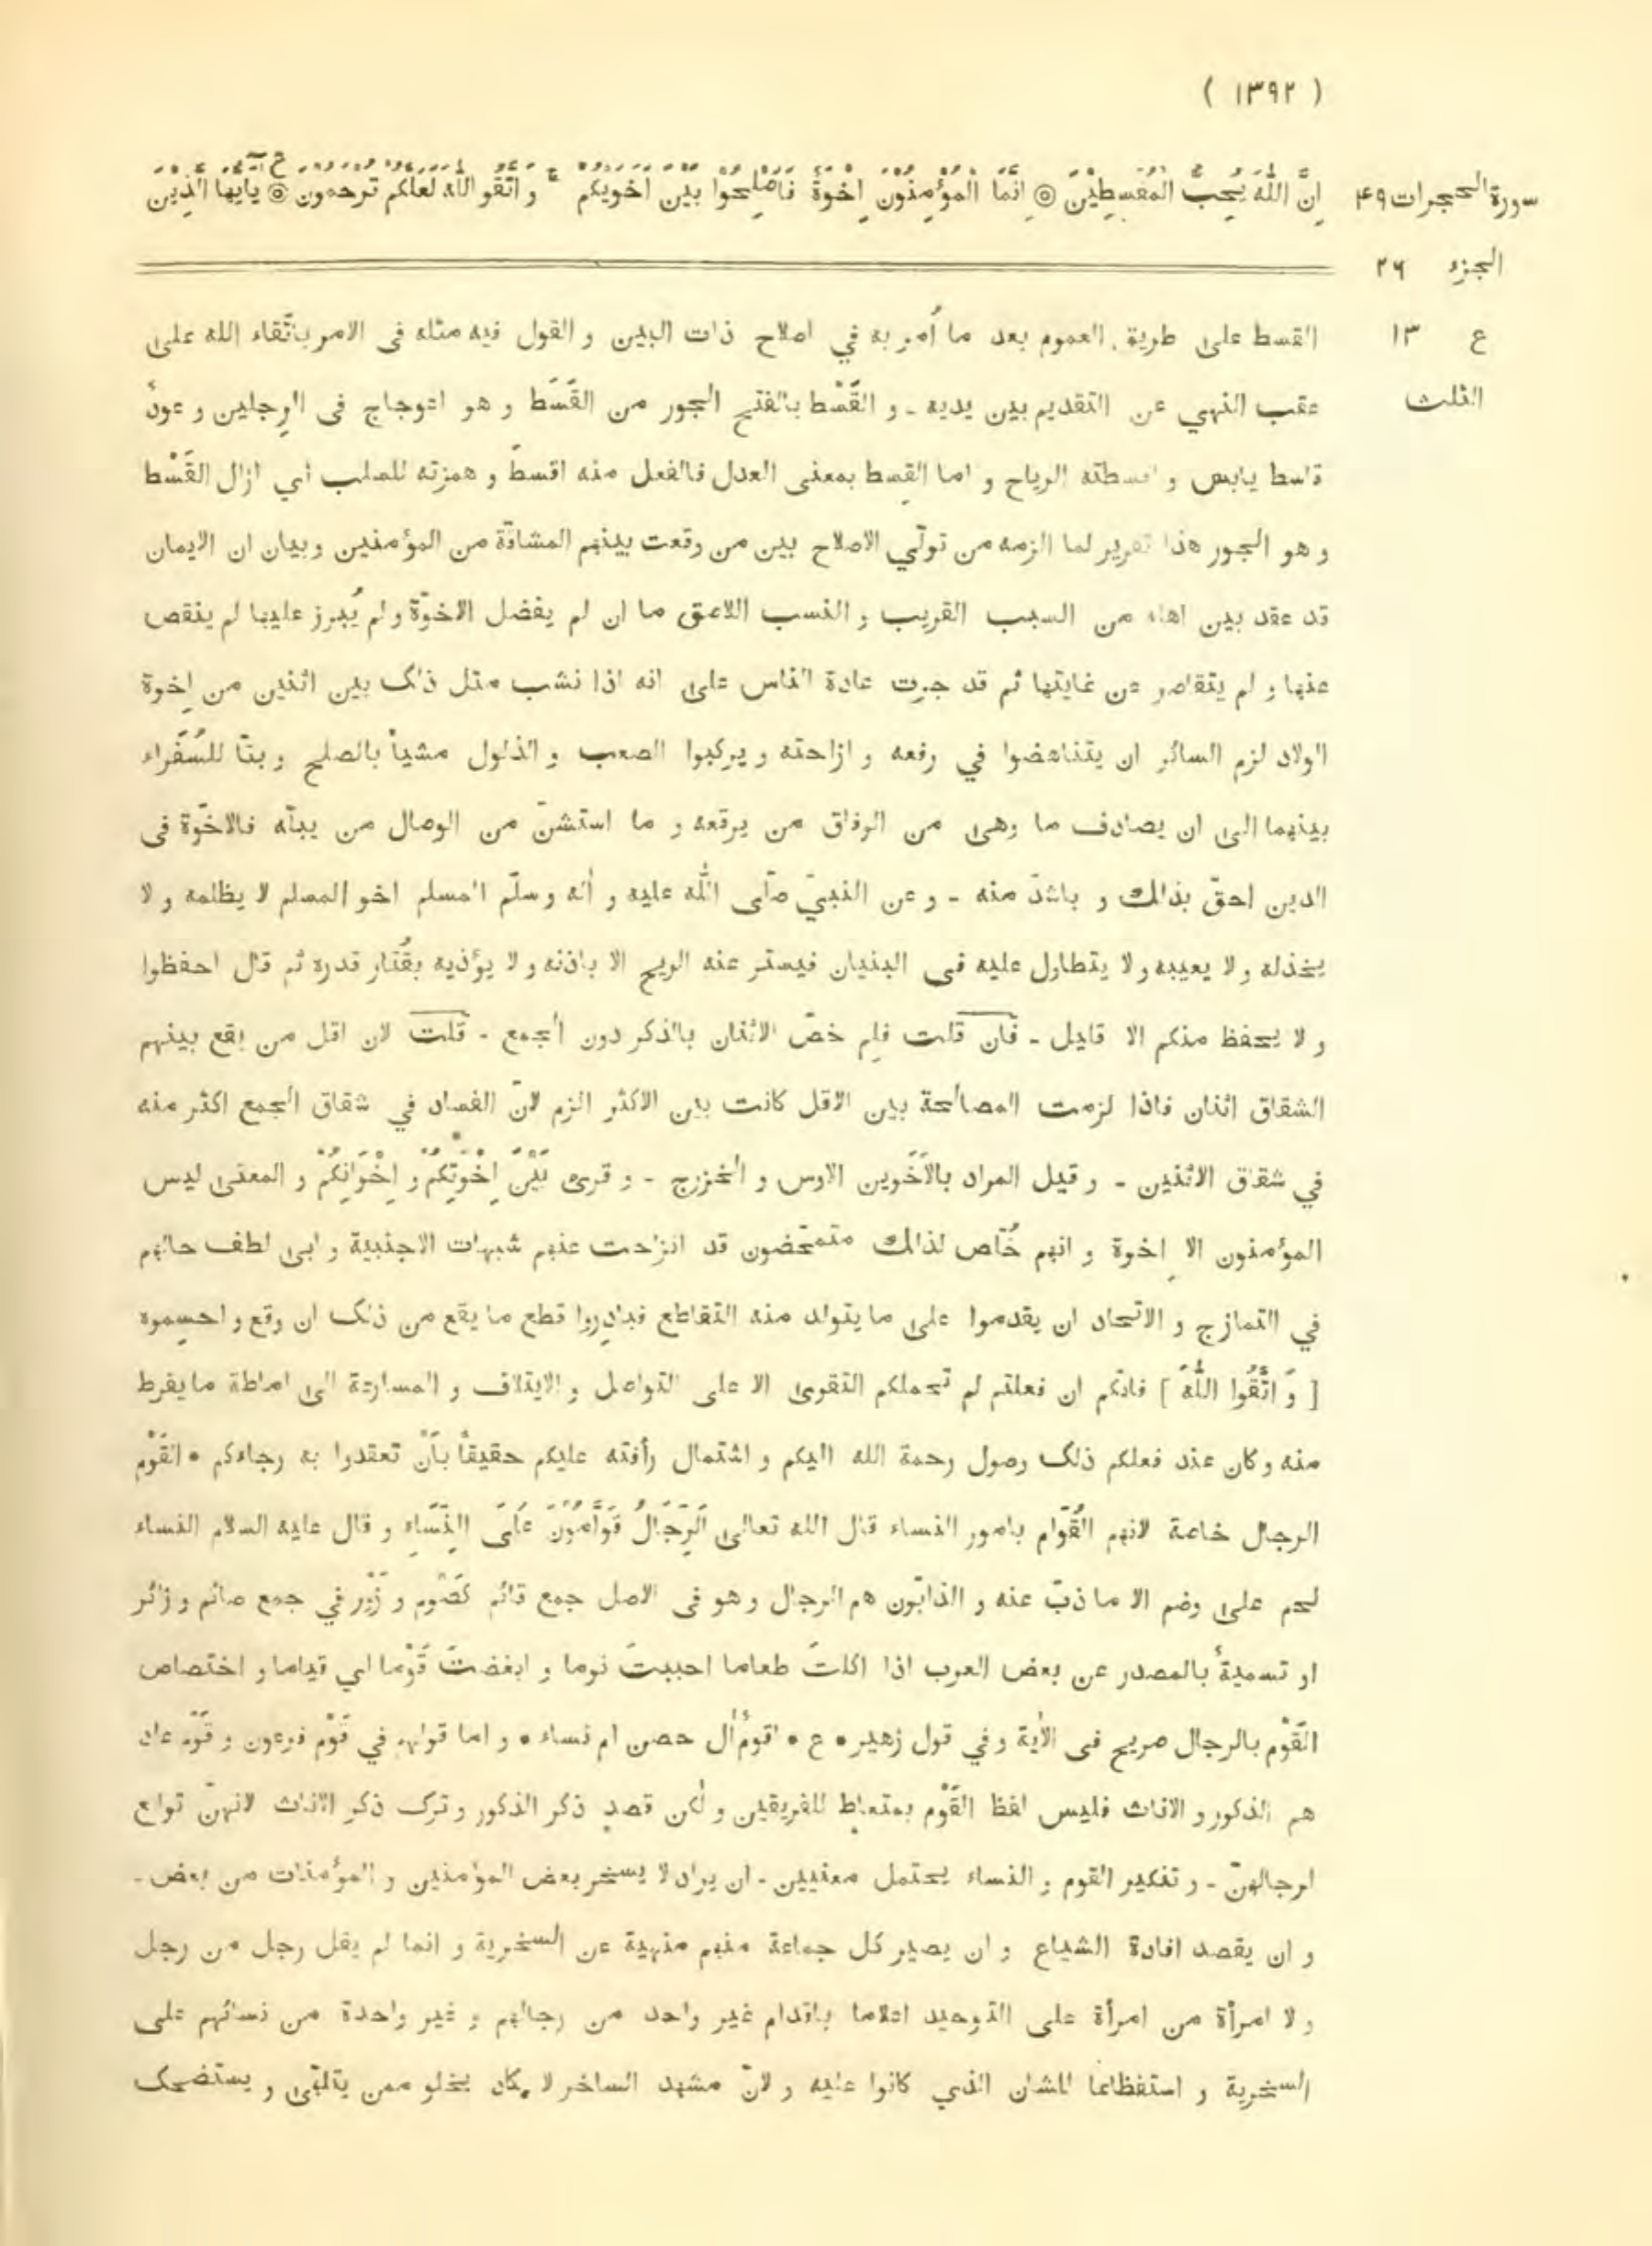 ( ١٣٩٢ )
سورة الحجرات ٤٩
اِنَّ اللّٰهَ يُحِبُّ الْمُقْسِطِيْنَ ۞ اِنَّمَا الْمُؤْمِنُوْنَ اِخْوَةٌ فَاَصْلِحُوْا بَيْنَ اَخَوَيْكُمْ ۚ وَ اتَّقُوا اللّٰهَ لَعَلَّكُمْ تُرْحَمُوْنَ ۞ ع يٰاَيُّهَا الَّذِيْنَ
الجزء ٢٦
ع ١٣
الثلث
القسط على طريق العموم بعد ما اُمر به في اصلاح ذات البين و القول فيه مثله فى الامر باتّقاء الله على
عقب النهي عن التقديم بين يديه ـ و القَسْط بالفتح الجور من القَسَط و هو اعوجاج فى الرِجلين و عودٌ
قاسط يابس و اقسطته الرياح و اما القِسط بمعنى العدل فالفعل منه اقسطَ و همزته للسلب اي ازال القَسْط
و هو الجور هذا تقرير لما الزمه من تولّي الاصلاح بين من وقعت بينهم المشاقّة من المؤمنين و بيان ان الايمان
قد عقد بين اهله من السبب القريب و النسب اللاصق ما ان لم يفضل الاخوّة و لم يُبرز عليها لم ينقص
عنها و لم يتقاصر عن غايتها ثم قد جرت عادة الناس على انه اذا نشب مثل ذلك بين اثنين من اِخوة
الولاد لزم السائر ان يتناهضوا في رفعه و ازاحته و يركبوا الصعب و الذلول مشياً بالصلح و بثّا للسُفَراء
بينهما الى ان يصادف ما وهى من الوفاق من يرقعه و ما استشنّ من الوصال من يبلّه فالاخوّة فى
الدين احقّ بذلك و باشدّ منه ـ و عن النبيّ صلّى اللّٰه عليه و اٰله و سلّم المسلم اخو المسلم لا يظلمه و لا
يخذله و لا يعيبه و لا يتطاول عليه فى البنيان فيستر عنه الريح الا باذنه و لا يؤذيه بقُتار قدره ثم قال احفظوا
و لا يحفظ منكم الا قليل ـ فان قلت فلِم خصّ الاثنان بالذكر دون الجمع ـ قلت لان اقل من يقع بينهم
الشقاق اثنان فاذا لزمت المصالحة بين الاقل كانت بين الاكثر الزم لانّ الفساد في شقاق الجمع اكثر منه
في شقاق الاثنين ـ و قيل المراد بالاَخَوين الاوس و الخزرج ـ و قرئ بَيْنَ اِخْوَتِكُمْ و اِخْوَانِكُمْ و المعنى ليس
المؤمنون الا اِخوة و انهم خُلّص لذلك متمحّضون قد انزاحت عنهم شبهات الاجنبية و ابى لطف حالهم
في التمازج و الاتحاد ان يقدموا على ما يتولد منه التقاطع فبادِروا قطع ما يقع من ذلك ان وقع و احسموه
[ وَ اتَّقُوا اللّٰهَ ] فانكم ان فعلتم لم تحملكم التقوى الا على التواصل و الايتلاف و المسارعة الى اماطة ما يفرط
منه و كان عند فعلكم ذلك وصول رحمة الله اليكم و اشتمال رأفته عليكم حقيقاً بأَنْ تعقدوا به رجاءكم • القَوْم
الرجال خاصة لانهم القُوّام بامور النساء قال الله تعالى اَلرِّجَالُ قَوَّامُوْنَ عَلَى النِّسَاءِ و قال عليه السلام النساء
لحم على وضم الا ما ذبّ عنه و الذابّون هم الرجال و هو فى الاصل جمع قائم كَصَوْم و زَوْر في جمع صائم و زائر
او تسميةٌ بالمصدر عن بعض العرب اذا اكلتَ طعاما احببتَ نوما و ابغضتَ قَوْما اي قياما و اختصاص
القَوْم بالرجال صريح فى الاٰية و في قول زهير • ع • اقومٌ اٰل حصن ام نساء • و اما قولهم في قَوْم فرعون و قَوْم عاد
هم الذكور و الاناث فليس لفظ القَوْم بمتعاطٍ للفريقين و لٰكن قصد ذكر الذكور و ترك ذكر الاناث لانهنّ توابع
لرجالهنّ ـ و تنكير القوم و النساء يحتمل معنيين ـ ان يراد لا يسخر بعض المؤمنين و المؤمنات من بعض ـ
و ان يقصد افادة الشياع و ان يصير كل جماعة منهم منهية عن السخرية و انما لم يقل رجل من رجل
و لا امرأة من امرأة على التوحيد اعلاما باقدام غير واحد من رجالهم و غير واحدة من نسائهم على
السخرية و استفظاعا للشان الذي كانوا عليه و لانّ مشهد الساخر لا يكاد يخلو ممن يتلهّى و يستضحك